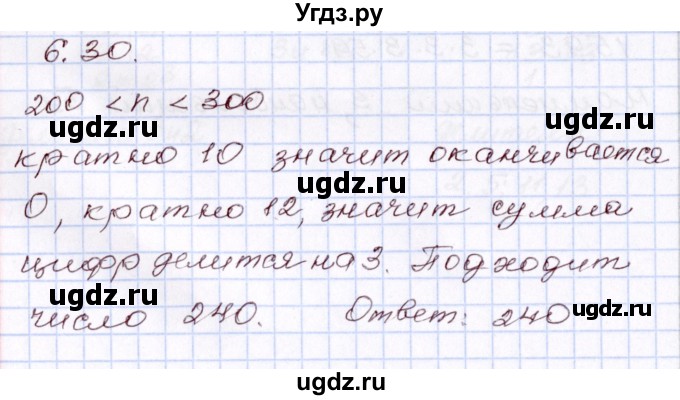 Угдз.ру
6.30.
200 < n < 300
ugdz.ru ugdz.ru
кратно 10 значит оканчивается
ugdz.ru
0, кратно 12, значит сумма
ugdz.ru ugdz.ru
цифр делится на 3. Подходит
ugdz.ru
число 240. Ответ: 240
ugdz.ru ugdz.ru
ugdz.ru